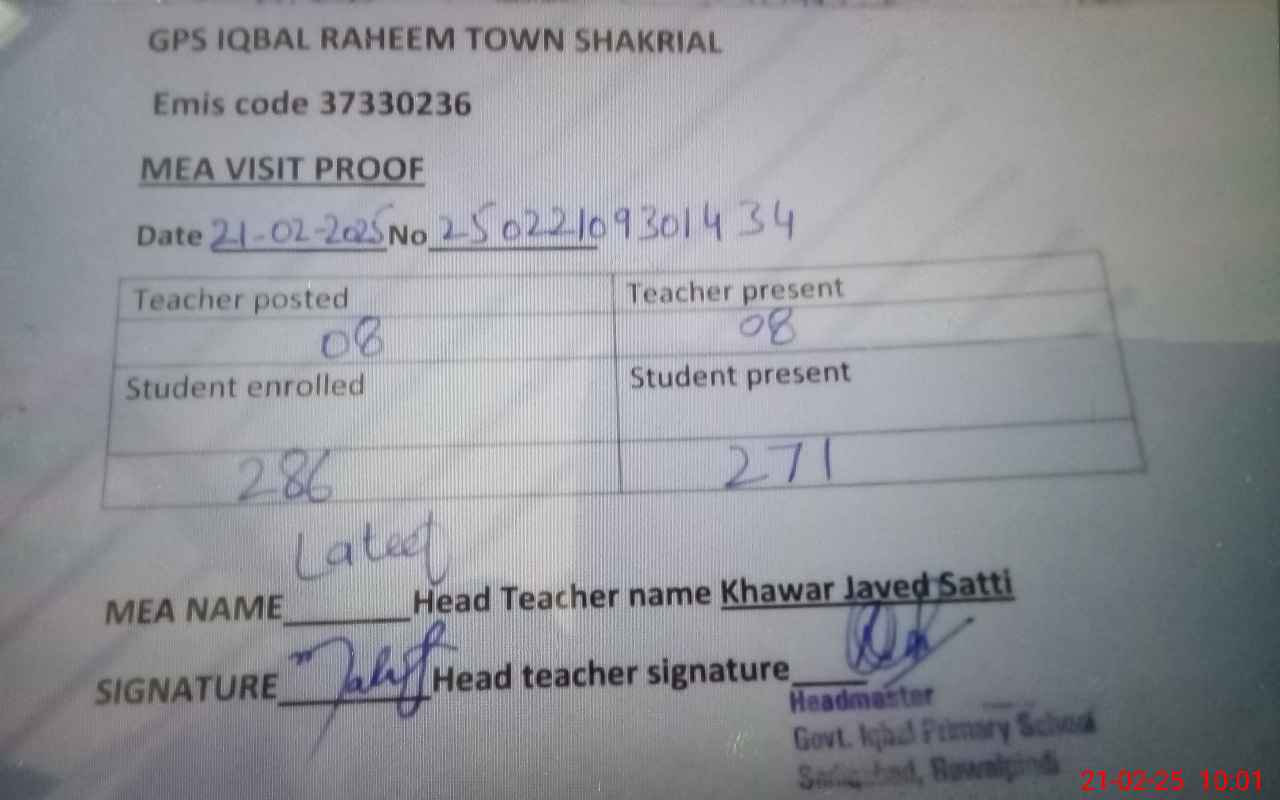 GPS IQBAL RAHEEM TOWN SHAKRIAL
Emis code 37330236
MEA VISIT PROOF
Date 21-02-2025 No 25022109301434
Teacher posted Teacher present
08 08
Student enrolled Student present
286 271
Lateef
MEA NAME______ Head Teacher name Khawar Javed Satti
SIGNATURE Head teacher signature
Headmaster
Govt. Iqbal Primary School
Rawalpindi
21-02-25 10:01